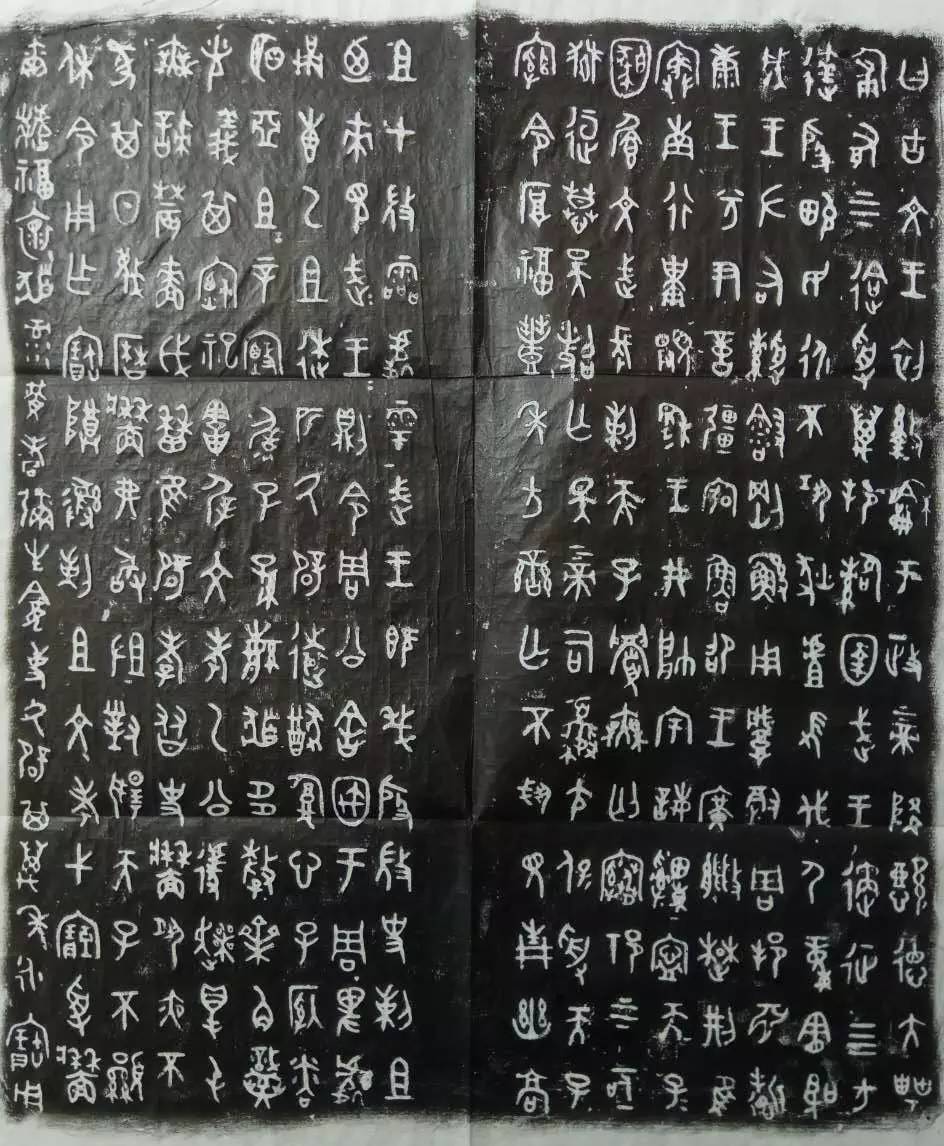 曰古文王初盭龢于政上帝降懿德大甹
匍有上下迨受萬邦圉武王遹征四方
達殷畯民永不巩狄虘伐尸童憲聖
成王左右剛鯀用肇徹周邦淵哲
康王兮尹億疆宏魯邵王廣楚荊隹
寏南行祗覭穆王井帥宇誨寧天子
文武長剌天子眉無匄祁上下亟
慕昊亡斁上帝司夒尢保受天子
綰令厚福豐年方蠻亡不見青幽高
且才微靈處雩武王既殷微史剌且
廼來見武王則令周公舍于周卑處
甬叀乙且匹厥辟遠猷腹心子粦
明亞且辛毓子孫繁多釐齊角熾
光義其禋祀害屖文考乙公遽爽得屯
無諫農穡歷隹辟孝友史墻夙夜不
其日蔑曆墻弗敢沮對揚天子不顯
休令用乍寶尊彝剌且文考弋受墻
爾福懷彔黃耇彌生龕事厥辟其萬年永寶用